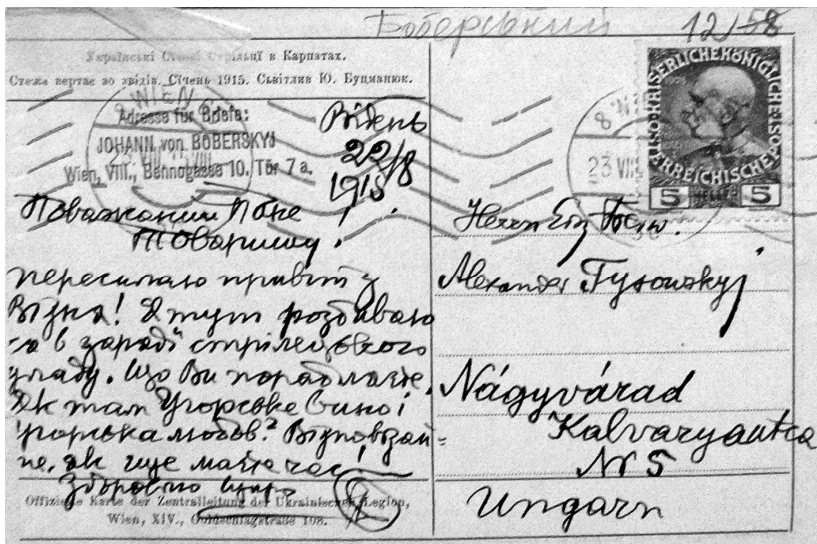 Боберський 12/58
Українські Січові Стрільці в Карпатах.
Стежа вертає зо звідів. Січень 1915. Сьвітлив Ю. Буцманюк.
WIEN
Adresse für Briefe:
JOHANN von BOBERSKYJ
Wien, VIII., Bennogasse 10. Tür 7 a.
Відень
22/8
1915.
Поважаний Пане
Товаришу!
пересилаю привіт з
Відня! Я тут роздаваю
в заряді стрілецкого
Що Ви порабляєте.
Як там Угорське вино і
угорська любов? Відповідай=
те, як ще маєте час!
Здоровлю щиро
Offizielle Karte der Zentralleitung der Ukrainischen Legion,
Wien, XIV., Goldschlagstraße 108.
KAISERLICHE KÖNIGLICHE ÖSTERREICHISCHE POST
5 HELLER 5
23 VIII
Herrn Einj. Freiw.
Alexander Tysowskyj
Nágyvárad
Kalvaryautca
Nr 5
Ungarn